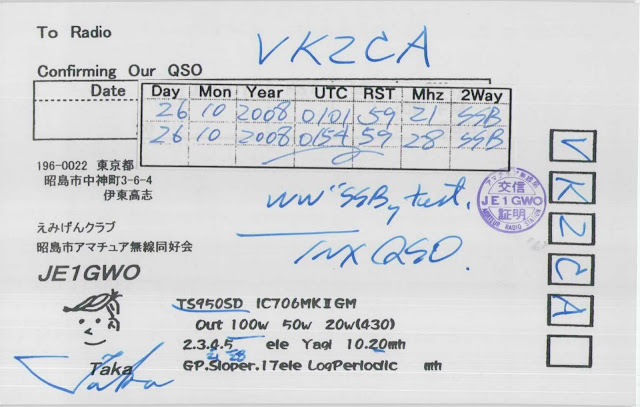 To Radio
VK2CA
Confirming Our QSO
Date
Day Mon Year UTC RST Mhz 2Way
26 10 2008 0101 59 21 SSB
26 10 2008 0154 59 28 SSB
196-0022 東京都
昭島市中神町3-6-4
伊東高志
WW "SSB, test.
TNX QSO.
アマチュア無線局
交信
JE1GWO
証明
AMATEUR RADIO STATION
V
K
2
C
A
えみげんクラブ
昭島市アマチュア無線同好会
JE1GWO
TS950SD IC706MKⅡGM
Out 100w 50w 20w(430)
2.3.4.5 ele Yagi 10.20mh
21 28
GP.Sloper.17ele LogPeriodic mh
Taka